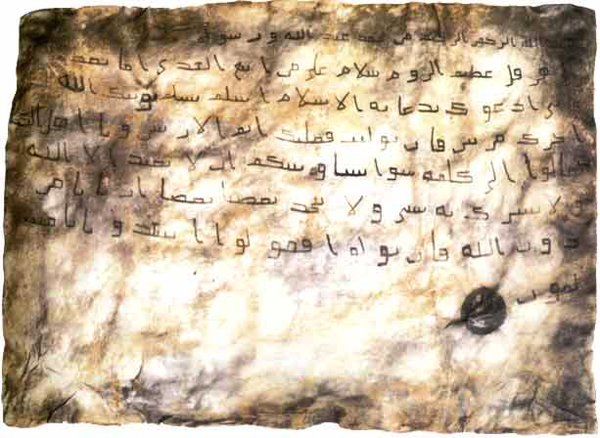 الله الرحمن الرحيم من محمد عبد الله ورسوله
هرقل عظيم الروم سلام على من اتبع الهدى اما بعد
ادعوك بدعاية الاسلام اسلم تسلم يوتك الله
اجرك مرتين فان توليت فعليك اثم الاريسين ويا اهل الك
تعالوا الى كلمة سوا بيننا وبينكم ان لا نعبد الا الله
ولا نشرك به شيا ولا يتخذ بعضنا بعضا اربابا من
دون الله فان تولوا فقولوا اشهدوا بانا مسل
مون